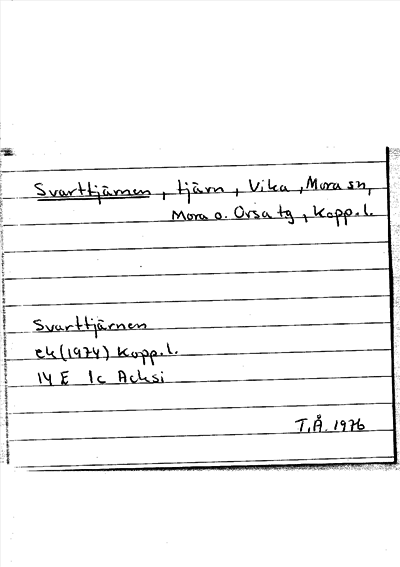 Svarttjärnen, tjärn, Vika, Mora sn,
Mora o. Orsa tg, Kopp.l.
Svarttjärnen
ek (1974) Kopp.l.
14 E 1c Acksi
T.Å. 1976